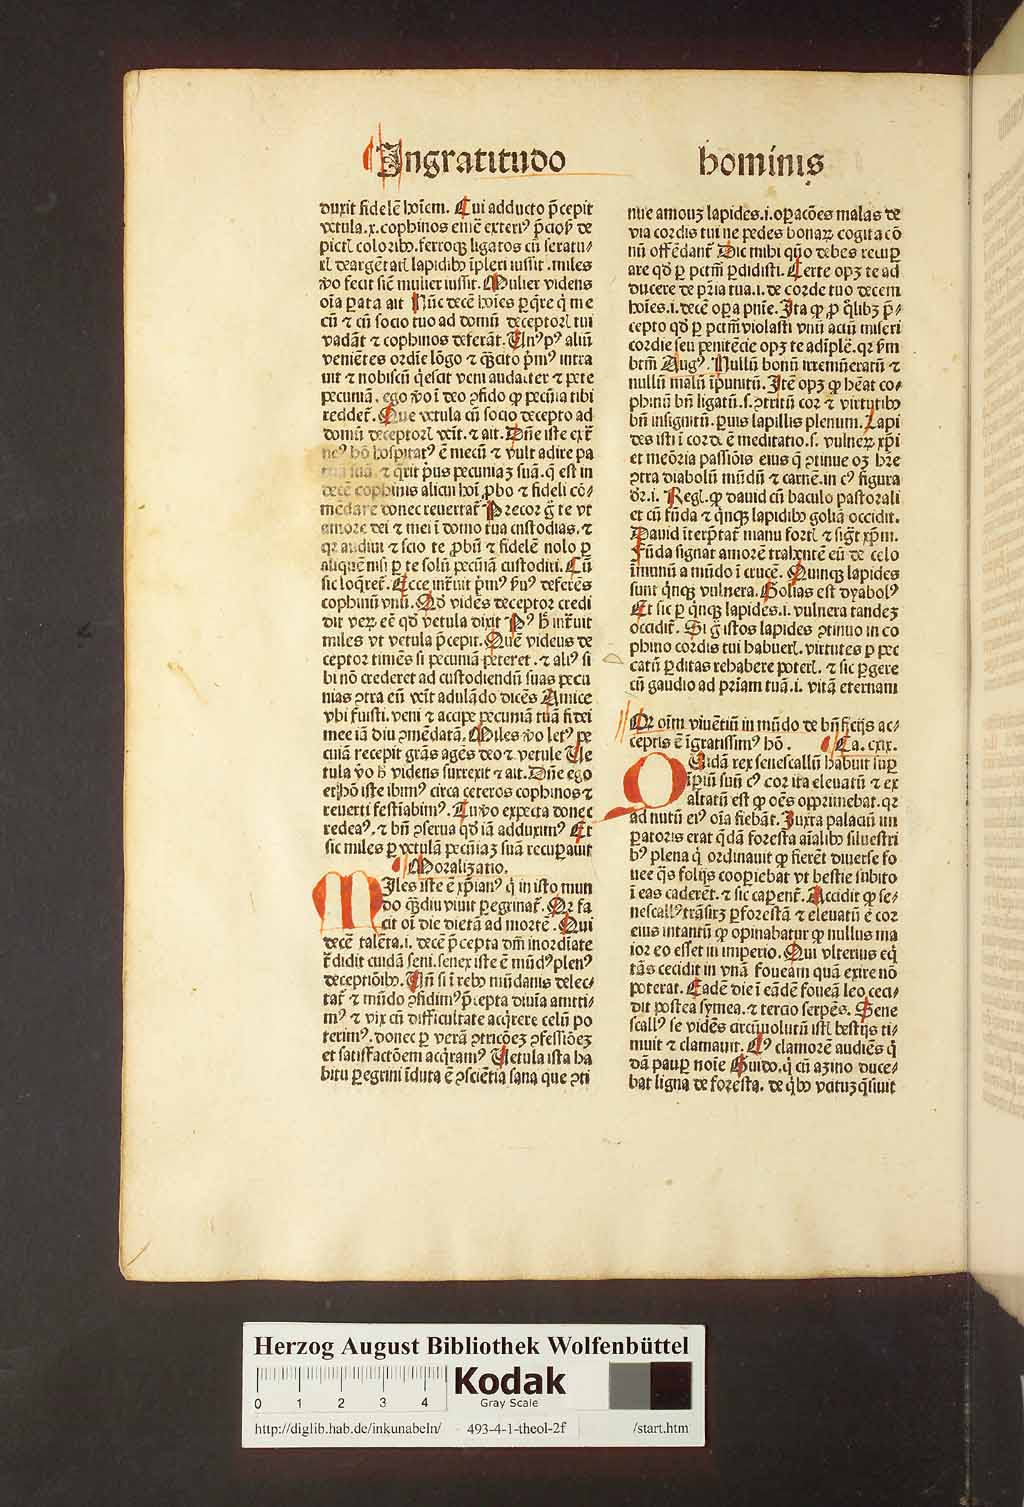 Ingratitudo hominis
duxit fidelē hoīem. Cui adducto p̄cepit
vetula .x. cophinos emē exteriꝰ p̄ciosꝭ de
pictꝭ coloribꝰ. ferroqꝫ ligatos cū seratu⸗
rꝭ deargētatꝭ lapidibꝰ īpleri iussit. miles
v̄o fecit sic̄ mulier iussit. Mulier videns
oīa ꝑata ait Nūc decē hoīes ꝑq̄re q̇ me
cū ⁊ cū socio tuo ad domū deceptorꝭ tui
vadāt ⁊ cophinos deferāt. Unꝰ pꝰ aliū
veniētes ordīe lōgo ⁊ qꝫcito p̄mꝰ intra
uit ⁊ nobiscū q̇escit veni audacter ⁊ pete
pecuniā. ego v̄o ī deo ꝯfido ꝙ pecūia tibi
reddet̄. Que vetula cū socio decepto ad
domū deceptorꝭ veīt. ⁊ ait. Dn̄e iste ext̄
neꝰ hō hospitatꝰ ē mecū ⁊ vult adire pa
triā suā. ⁊ q̄rit p̄us pecuniaꝫ suā. q̄ est in
decē cophinis alicui hoī ꝓbo ⁊ fideli cō⸗
mēdare donec reuertat̄ Precor g̊ te vt
amore dei ⁊ mei ī domo tua custodias. ⁊
qꝛ audiui ⁊ scio te ꝓbū ⁊ fidelē nolo ꝑ
aliquē nisi ꝑ te solū pecūiā custodiri. Cū
sic loq̄ret̄. Ecce intrauit p̄mꝰ ẜuꝰ deferēs
cophinū vnū. Qd̄ vidēs deceptor credi
dit verꝫ eē qd̄ vetula dixit Pꝰ h̄ intrauit
miles vt vetula p̄cepit. Quē videns de
ceptor timēs si pecuniā peteret. ⁊ aliꝰ si
bi nō crederet ad custodiendū suas pecu
nias ꝯtra eū veīt adulādo dicēs Amice
vbi fuisti. veni ⁊ accipe pecuniā tuā fidei
mee iā diu ꝯmēdatā. Miles v̄o letꝰ pe
cuiā recepit grās agēs deo ⁊ vetule Ue
tula v̄o h̄ videns surrexit ⁊ ait. Dn̄e ego
et hō iste ibimꝰ circa ceteros cophinos ⁊
reuerti festīabimꝰ. Tu v̄o expecta donec
redeāꝰ. ⁊ bn̄ ꝯserua qd̄ iā adduximꝰ Et
sic miles ꝑ vetulā pecūiaꝫ suā recuꝑauit
Moralizatio.
MIles iste ē xp̄ianꝰ q̇ in isto mun
do qꝫdiu viuit ꝑegrinat̄. Qꝛ fa
cit oī die dietā ad mortē. Qui
decē talēta .i. decē p̄cepta dn̄i inordīate
tradidit cuidā seni. senex iste ē mūdꝰ plenꝰ
deceptiōibꝰ. Un̄ si ī rebꝰ mūdanis delec⸗
tat̄ ⁊ mūdo ꝯfidimꝰ p̄cepta diuīa amitti⸗
mꝰ ⁊ vix cū difficultate acq̄rere celū po
terimꝰ. donec ꝑ verā ꝯtricōeꝫ ꝯfessiōeꝫ
et satisfactōem acq̄ramꝰ Uetula ista ha
bitu ꝑegrini īduta ē ꝯsciētia sana que ꝯti
nue amouꝫ lapides .i. oꝑacōes malas de
via cordis tui ne pedes bonarꝫ cogitacō
nū offēdant̄ Dic mihi quō debes recuꝑ
are qd̄ ꝑ pctm̄ ꝑdidisti. Certe opꝫ te ad
ducere de pr̄ia tua .i. de corde tuo decem
hoīes .i. decē oꝑa pnīe. Ita ꝙ ꝓ q̄libꝫ p̄⸗
cepto qd̄ ꝑ pctm̄ violasti vnū actū miseri
cordie seu penitēcie opꝫ te adīplē. qꝛ ẜm
btm̄ Augꝰ. Nullū bonū irremūeratū ⁊
nullū malū īpunitū. Itē opꝫ ꝙ hēat co⸗
phinū bn̄ ligatū .s. ꝯtritū cor ⁊ virtutibꝰ
bn̄ insignitū. ꝑuis lapillis plenum. Lapi
des isti ī corde ē meditatio .s. vulnerꝫ xp̄i
et meōria passiōis eius q̄ ꝯtinue oꝫ hr̄e
ꝯtra diabolū mūdū ⁊ carnē. in cꝰ figura
dr̄ .i. Regꝭ. ꝙ dauid cū baculo pastorali
et cū fūda ⁊ q̇nqꝫ lapidibꝰ goliā occidit.
Dauid īterp̄tat̄ manu fortꝭ ⁊ sigt̄ xp̄m.
Fūda signat amorē trahentē eū de celo
īmunū a mūdo ī crucē. Quinqꝫ lapides
sunt q̇nqꝫ vulnera. Golias est dyabolꝰ
Et sic ꝑ q̇nqꝫ lapides .i. vulnera tandeꝫ
occidit̄. Si g̊ istos lapides ꝯtinuo in co
phino cordis tui habuerꝭ. virtutes ꝑ pec
catū ꝑditas rehabere poterꝭ. ⁊ sic ꝑgere
cū gaudio ad pr̄iam tuā .i. vitā eternam
Qꝛ oīm viuētiū in mūdo de bn̄ficijs ac⸗
ceptis ē īgratissimꝰ hō. Ca. cxix.
QUidā rex senescallū habuit suꝑ
īperiū suū cꝰ cor ita eleuatū ⁊ ex
altatū est ꝙ oēs opprimebat. qꝛ
ad nutū eiꝰ oīa fiebāt. Iuxta palaciū im
ꝑatoris erat q̄dā foresta aīalibꝰ siluestri
bꝰ plena q̇ ordinauit ꝙ fierēt diuerse fo
uee q̄s folijs cooꝑiebat vt bestie subito
ī eas caderēt. ⁊ sic caꝑent̄. Accidit ꝙ se⸗
nescallꝰ trāsirꝫ ꝑ forestā ⁊ eleuatū ē cor
eius intantū ꝙ opinabatur ꝙ nullus ma
ior eo esset in imperio. Qui vlterius eq̇
tās cecidit in vnā foueam quā exire nō
poterat. Eadē die ī eādē foueā leo ceci⸗
dit postea symea. ⁊ tercio serpēs. Sene
scallꝰ se vidēs circūuolutū istꝭ bestijs ti⸗
muit ⁊ clamauit. Cꝰ clamorē audiēs q̇
dā pauꝑ noīe Guido. q̇ cū azino duce⸗
bat ligna de foresta. de q̇bꝰ victuꝫ q̄siuit
Herzog August Bibliothek Wolfenbüttel
0 1 2 3 4
Kodak
Gray Scale
http://diglib.hab.de/inkunabeln/ 493-4-1-theol-2f /start.htm